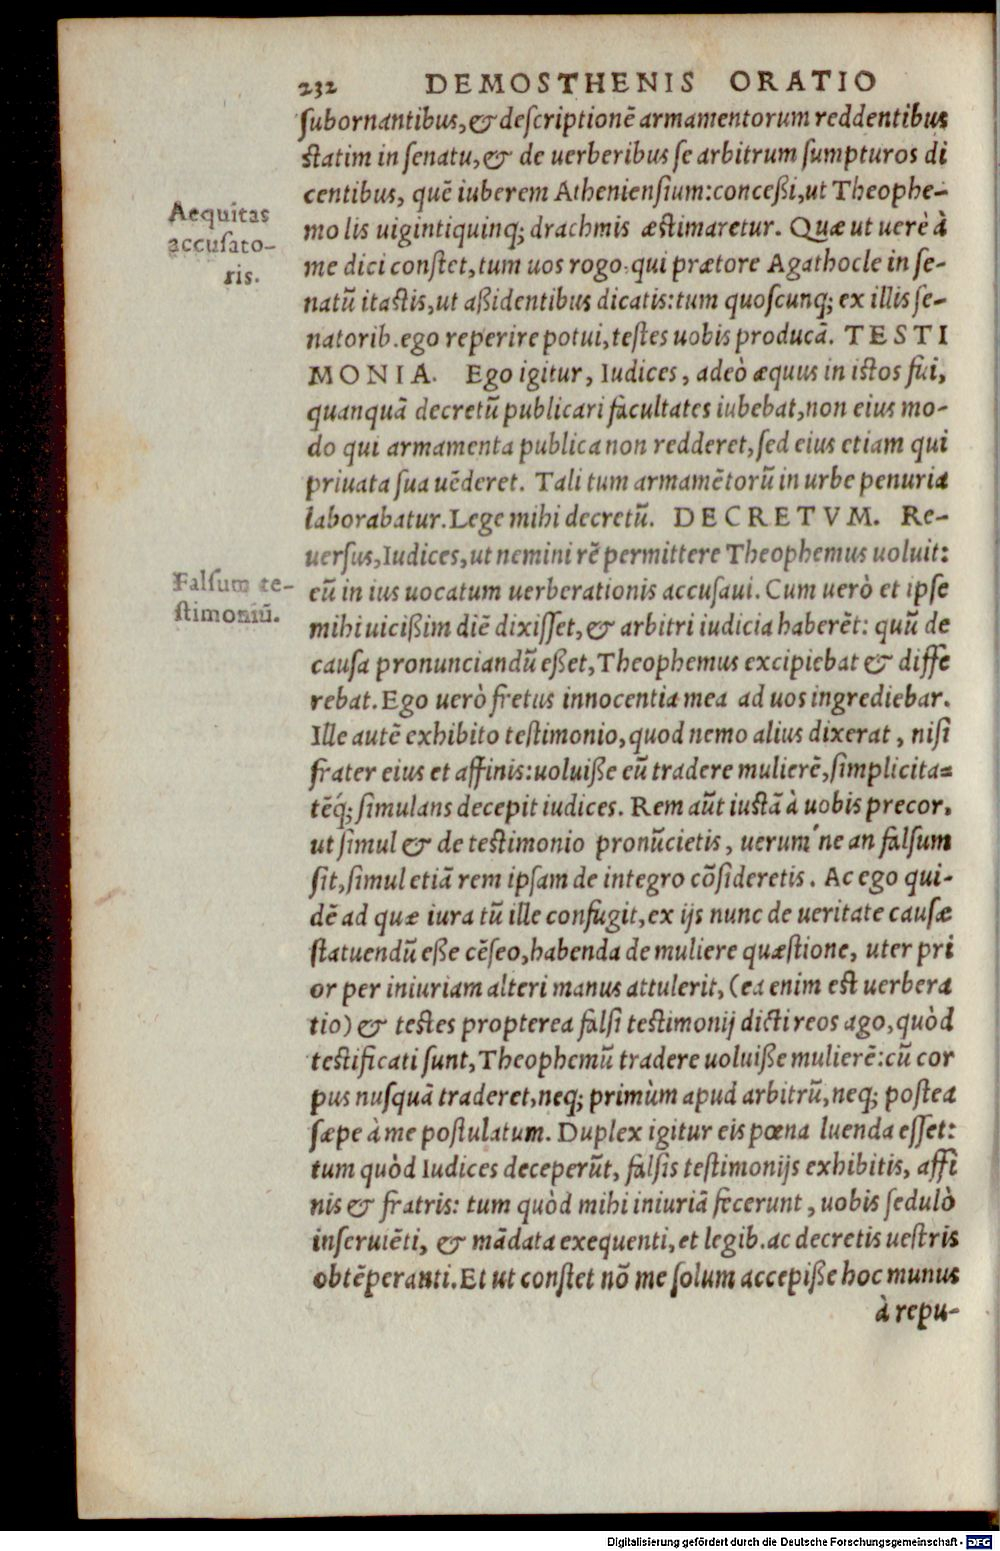 232 DEMOSTHENIS ORATIO
subornantibus, & descriptionē armamentorum reddentibus
statim in senatu, & de uerberibus se arbitrum sumpturos di
centibus, quē iuberem Atheniensium: conceßi, ut Theophe-
mo lis uigintiquinq; drachmis æstimaretur. Quæ ut uerè à
me dici constet, tum uos rogo, qui prætore Agathocle in se-
natū itastis, ut aßidentibus dicatis: tum quoscunq; ex illis se-
natorib. ego reperire potui, testes uobis producā. TESTI
MONIA. Ego igitur, Iudices, adeò æquus in istos fui,
quanquā decretū publicari facultates iubebat, non eius mo-
do qui armamenta publica non redderet, sed eius etiam qui
priuata sua uēderet. Tali tum armamētorū in urbe penuria
laborabatur. Lege mihi decretū. DECRETVM. Re-
uersus, Iudices, ut nemini rē permittere Theophemus uoluit:
eū in ius uocatum uerberationis accusaui. Cum uerò et ipse
mihi uicißim diē dixisset, & arbitri iudicia haberēt: quū de
causa pronunciandū eßet, Theophemus excipiebat & diffe
rebat. Ego uerò fretus innocentia mea ad uos ingrediebar.
Ille autē exhibito testimonio, quod nemo alius dixerat, nisi
frater eius et affinis: uoluiße eū tradere mulierē, simplicita=
tēq́; simulans decepit iudices. Rem aūt iustā à uobis precor.
ut simul & de testimonio pronūcietis, uerum'ne an falsum
sit, simul etiā rem ipsam de integro cōsideretis. Ac ego qui-
dē ad quæ iura tū ille confugit, ex ijs nunc de ueritate causæ
statuendū eße cēseo, habenda de muliere quæstione, uter pri
or per iniuriam alteri manus attulerit, (ea enim est uerbera
tio) & testes propterea falsi testimonij dicti reos ago, quòd
testificati sunt, Theophemū tradere uoluiße mulierē: cū cor
pus nusquā traderet, neq; primùm apud arbitrū, neq; postea
sæpe à me postulatum. Duplex igitur eis pœna luenda esset:
tum quòd Iudices deceperūt, falsis testimonijs exhibitis, affi
nis & fratris: tum quòd mihi iniuriā fecerunt, uobis sedulò
inseruiēti, & mādata exequenti, et legib. ac decretis uestris
obtēperanti. Et ut constet nō me solum accepiße hoc munus
à repu-
Aequitas
accusato-
ris.
Falsum te-
stimoniū.
Digitalisierung gefördert durch die Deutsche Forschungsgemeinschaft - DFG